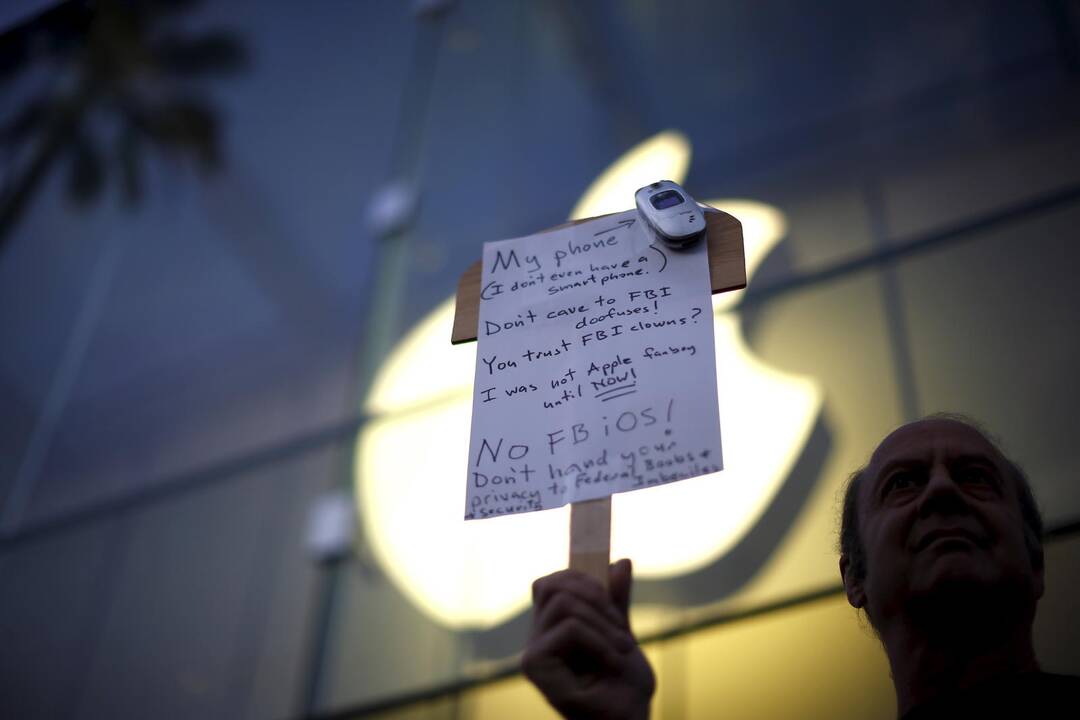 My phone
(I don't even have a)
smartphone.
Don't cave to FBI
doofuses!
You trust FBI clowns?
I was not Apple fanboy
until NOW!
No FBiOS!
Don't hand your
privacy to Federal Boobs +
+ security Imbeciles